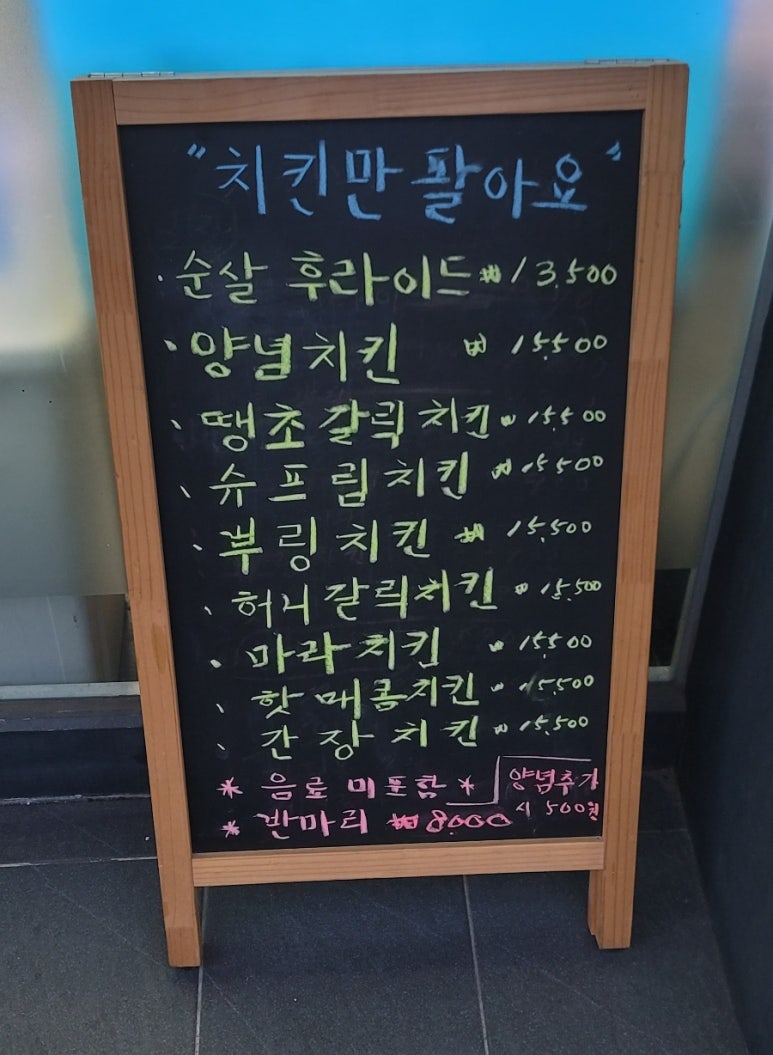 "치킨만 팔아요"
· 순살 후라이드 ₩13,500
· 양념치킨 ₩ 15,500
· 땡초갈릭치킨 ₩ 15,500
· 슈프림치킨 ₩ 15,500
· 뿌링치킨 ₩ 15,500
· 허니갈릭치킨 ₩ 15,500
· 마라치킨 ₩ 15,500
· 핫매콤치킨 ₩ 15,500
· 간장치킨 ₩ 15,500
* 음료 미포함 *
* 반마리 ₩8,000
양념추가
시 500원